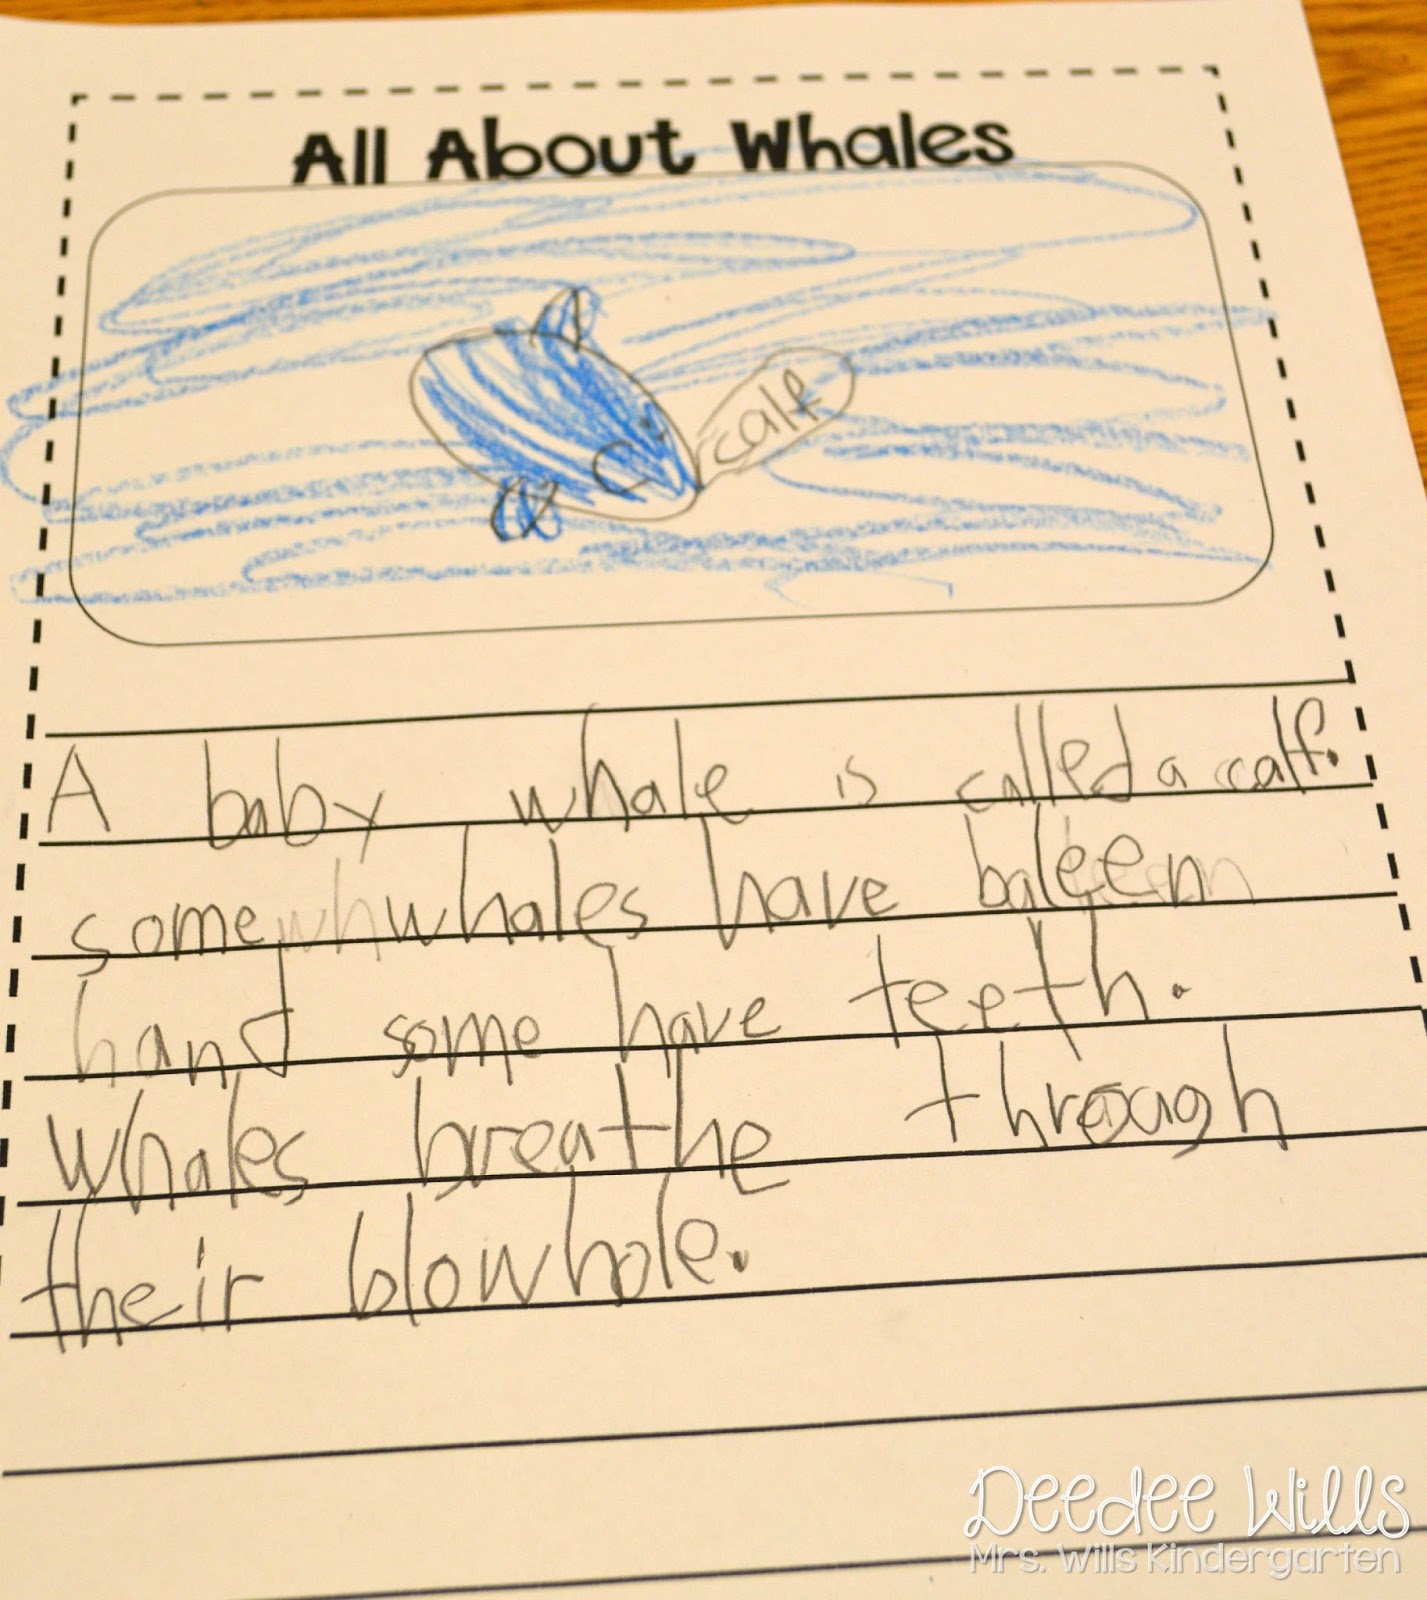 All About Whales
calf
A baby whale is called a calf.
some whales have baleen
hand some have teeth.
Whales breathe through
their blowhole.
Deedee Wills
Mrs. Wills Kindergarten